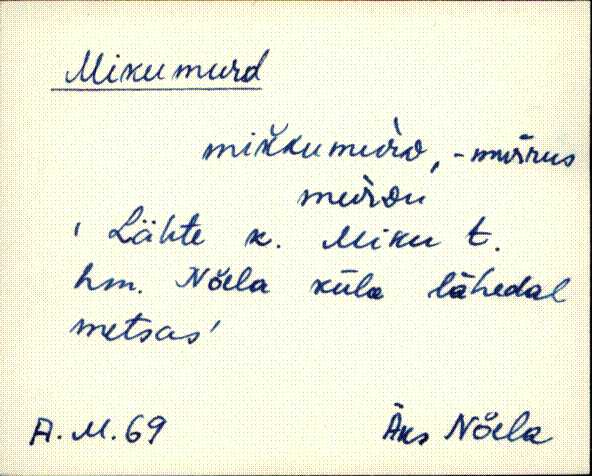 Mikumurd
mik̆kumùrd, -mùrrus
mùrdu
' Lähte k. Miku t.
hm. Nõela küla lähedal
metsas'
A. M. 69 Äks Nõela